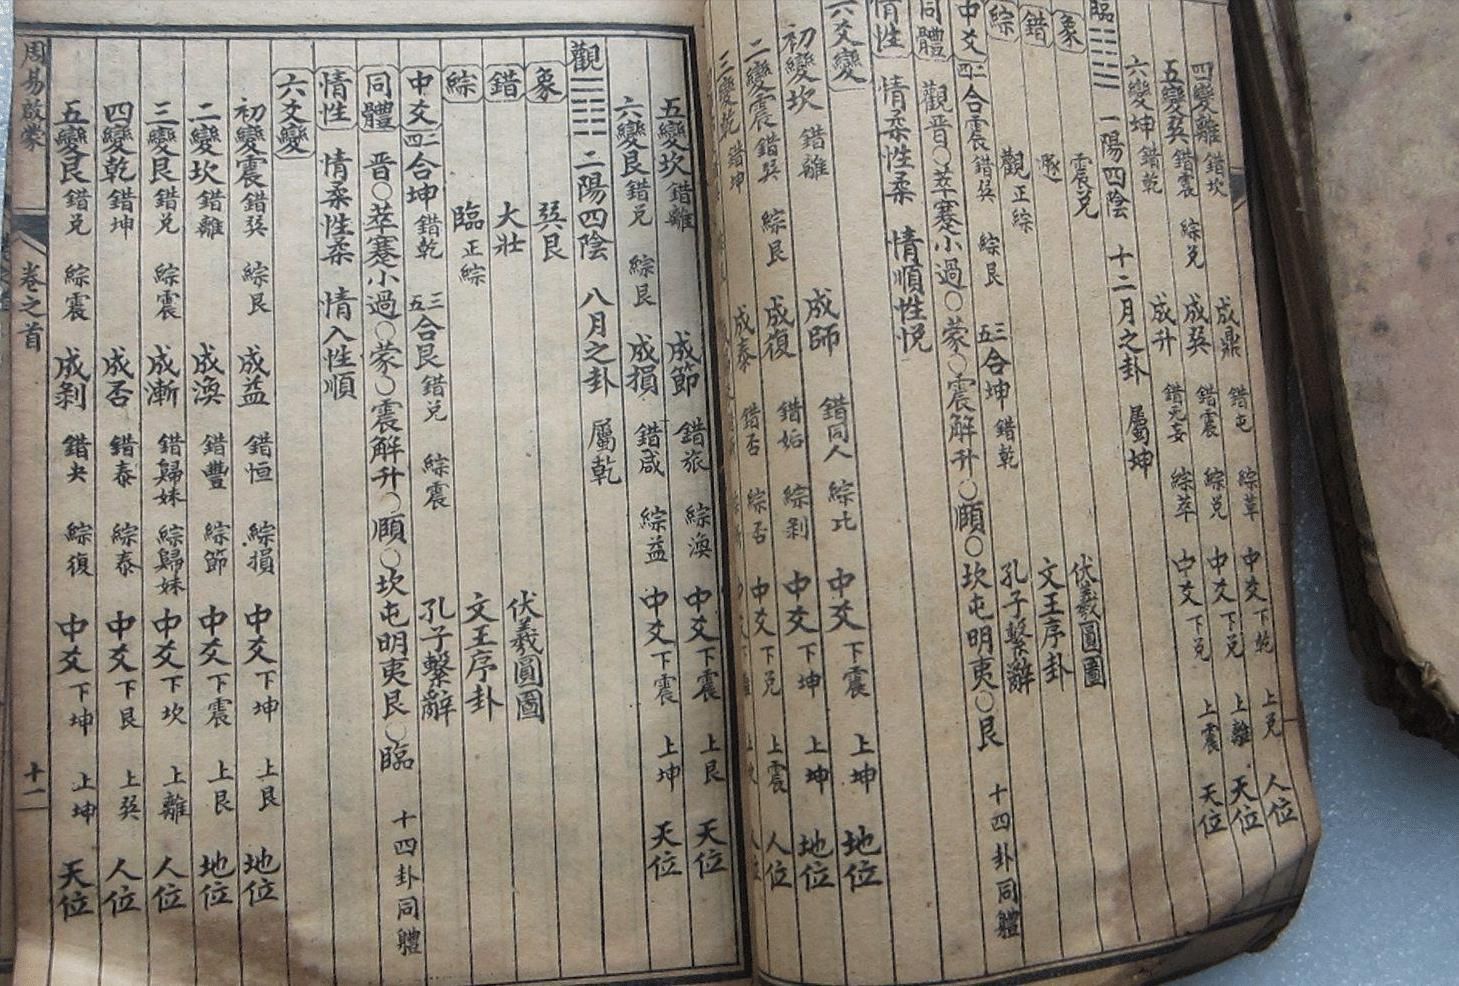 四變離 錯坎 成鼎 錯屯 綜革 中爻 下乾 上兌 人位
五變巽 錯震 綜兌 成巽 錯震 綜兌 中爻 下兌 上離 天位
六變坤 錯乾 成升 錯无妄 綜萃 中爻 下兌 上震 天位
臨 一陽四陰 十二月之卦 屬坤
象 震兌 伏羲圓圖
錯 遯 文王序卦
綜 觀 正綜 孔子繫辭
中爻 二四合震 錯巽 綜艮 三五合坤 錯乾
同體 觀晋○萃蹇小過○蒙○震解升○頤○坎屯明夷○艮 十四卦同體
情性 情柔性柔 情順性悅
六爻變
初變坎 錯離 成師 錯同人 綜比 中爻 下震 上坤 地位
二變震 錯巽 綜艮 成復 錯姤 綜剥 中爻 下坤 上坤 地位
三變乾 錯坤 成泰 錯否 綜否 中爻 下兌 上震 人位
五變坎 錯離 成節 錯旅 綜渙 中爻 下震 上艮 天位
六變艮 錯兌 綜艮 成損 錯咸 綜益 中爻 下震 上坤 天位
觀 二陽四陰 八月之卦 屬乾
象 巽艮 伏羲圓圖
錯 大壯 文王序卦
綜 臨 正綜 孔子繫辭
中爻 二四合坤 錯乾 三五合艮 錯兌 綜震
同體 晋○萃蹇小過○蒙○震解升○頤○坎屯明夷艮○臨 十四卦同體
情性 情柔性柔 情入性順
六爻變
初變震 錯巽 綜艮 成益 錯恒 綜損 中爻 下坤 上艮 地位
二變坎 錯離 成渙 錯豐 綜節 中爻 下震 上艮 地位
三變艮 錯兌 綜震 成漸 錯歸妹 綜歸妹 中爻 下坎 上離 人位
四變乾 錯坤 成否 錯泰 綜泰 中爻 下艮 上巽 人位
五變艮 錯兌 綜震 成剥 錯夬 綜復 中爻 下坤 上坤 天位
周易啟蒙 卷之首 十一